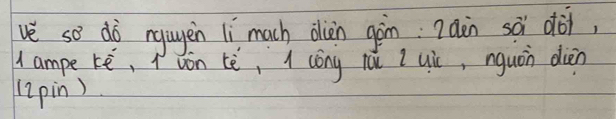 vẽ sơ đồ nguyên lí mạch điện gồm : 2 đèn sợi đốt,
1 ampe kế, 1 vôn kế, 1 công tắc 2 cực, nguồn điện
(2pin)